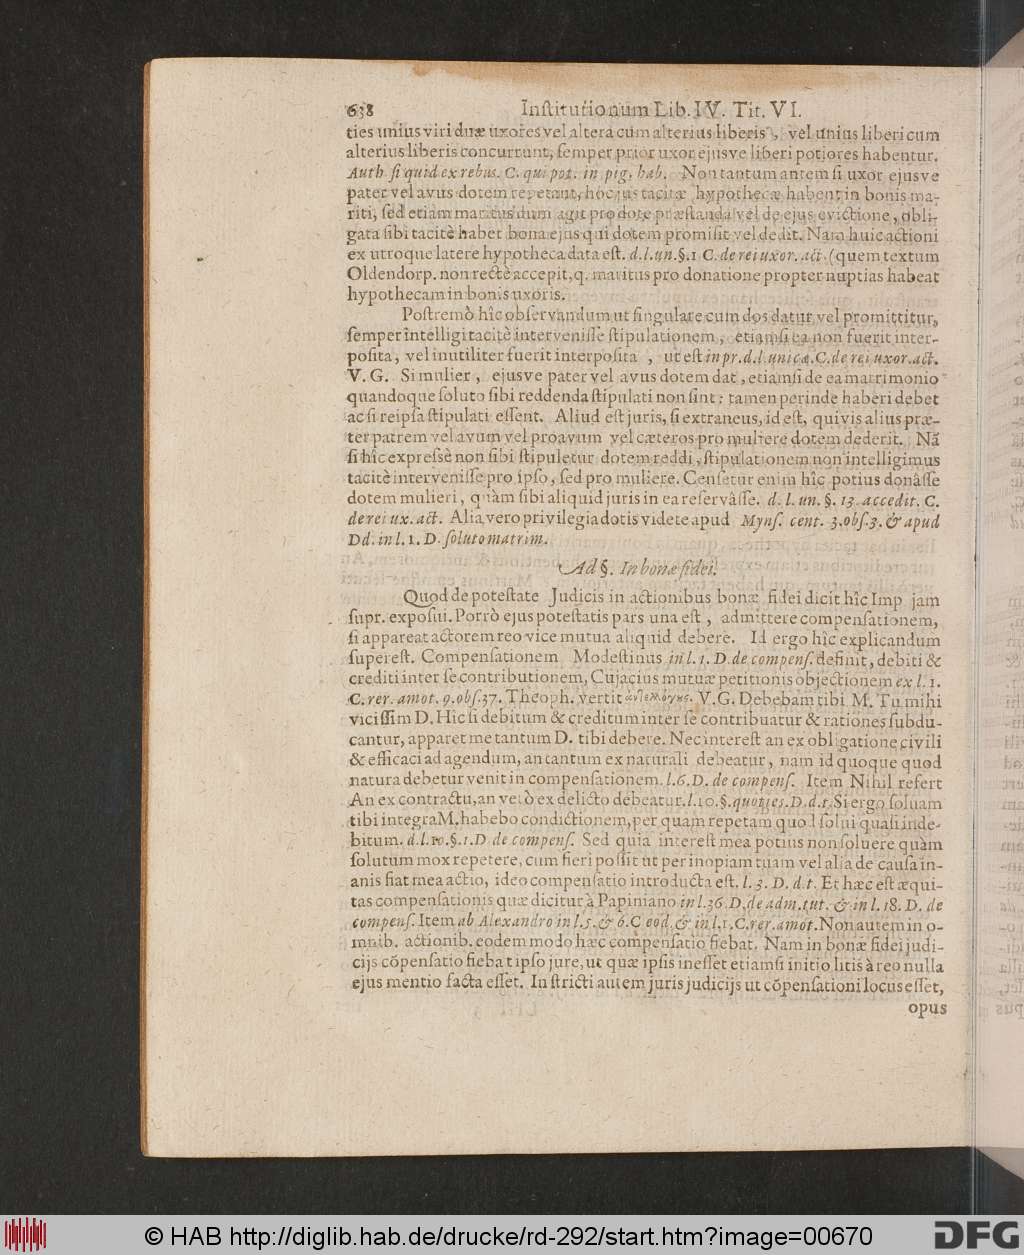 638 Inſtitutionum Lib. IV. Tit. VI.
ties unius viri duæ uxores vel altera cum alterius liberis, vel unius liberi cum
alterius liberis concurrunt, ſemper prior uxor ejusve liberi potiores habentur.
Auth. ſi quid ex rebus. C. qui pot. in pig. hab. Non tantum autem ſi uxor ejusve
pater vel avus dotem repetant, hoc jus tacitæ hypothecæ habent in bonis ma-
riti, ſed etiam maritus dum agit pro dote præſtanda vel de ejus evictione, obli-
gata ſibi tacitè habet bona ejus qui dotem promiſit vel dedit. Nam huic actioni
ex utroque latere hypotheca data eſt. d. l. un. §. 1 C. de rei uxor. act. (quem textum
Oldendorp. non rectè accepit, q. maritus pro donatione propter nuptias habeat
hypothecam in bonis uxoris.
Poſtremò hîc obſervandum ut ſingulare cum dos datur vel promittitur,
ſemper intelligi tacitè interveniſſe ſtipulationem, etiamſi ea non fuerit inter-
poſita, vel inutiliter fuerit interpoſita, ut eſt in pr. d. l. unica. C. de rei uxor. act.
V. G. Si mulier, ejusve pater vel avus dotem dat, etiamſi de ea matrimonio
quandoque ſoluto ſibi reddenda ſtipulati non ſint: tamen perinde haberi debet
ac ſi reipſa ſtipulati eſſent. Aliud eſt juris, ſi extraneus, id eſt, quivis alius præ-
ter patrem vel avum vel proavum vel cæteros pro muliere dotem dederit. Nã
ſi hîc expreſsè non ſibi ſtipuletur dotem reddi, ſtipulationem non intelligimus
tacitè interveniſſe pro ipſo, ſed pro muliere. Cenſetur enim hîc potius donâſſe
dotem mulieri, quàm ſibi aliquid juris in ea reſervâſſe. d. l. un. §. 13. accedit. C.
de rei ux. act. Alia vero privilegia dotis videte apud Mynſ. cent. 3. obſ. 3. & apud
Dd. in l. 1. D. ſoluto matrim.
Ad §. In bonæ fidei.
Quod de poteſtate Judicis in actionibus bonæ fidei dicit hîc Imp jam
ſupr. expoſui. Porrò ejus poteſtatis pars una eſt, admittere compenſationem,
ſi appareat actorem reo vice mutua aliquid debere. Id ergo hîc explicandum
ſupereſt. Compenſationem Modeſtinus in l. 1. D. de compenſ. definit, debiti &
crediti inter ſe contributionem, Cujacius mutuæ petitionis objectionem ex l. 1.
C. rer. amot. 9. obſ. 37. Theoph. vertit V. G. Debebam tibi M. Tu mihi
viciſſim D. Hic ſi debitum & creditum inter ſe contribuatur & rationes ſubdu-
cantur, apparet me tantum D. tibi debere. Nec intereſt an ex obligatione civili
& efficaci ad agendum, an tantum ex naturali debeatur, nam id quoque quod
natura debetur venit in compenſationem. l. 6. D. de compenſ. Item Nihil refert
An ex contractu, an verò ex delicto debeatur. l. 10. §. quoties. D. d. t. Si ergo ſolvam
tibi integra M. habebo condictionem, per quam repetam quod ſolui quaſi inde-
bitum. d. l. 10. §. 1. D de compenſ. Sed quia intereſt mea potius non ſoluere quàm
ſolutum mox repetere, cum fieri poſſit ut per inopiam tuam vel alia de cauſa in-
anis fiat mea actio, ideo compenſatio introducta eſt. l. 3. D. d. t. Et hæc eſt æqui-
tas compenſationis quæ dicitur à Papiniano in l. 36. D. de adm. tut. & in l. 18. D. de
compenſ. Item ab Alexandro in l. 5. & 6. C eod. & in l. 1. C. rer. amot. Non autem in o-
mnib. actionib. eodem modo hæc compenſatio fiebat. Nam in bonæ fidei judi-
cijs cõpenſatio fiebat ipſo jure, ut quæ ipſis ineſſet etiamſi initio litis à reo nulla
ejus mentio facta eſſet. In ſtricti autem juris judicijs ut cõpenſationi locus eſſet,
opus
© HAB http://diglib.hab.de/drucke/rd-292/start.htm?image=00670
DFG